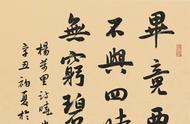 畢竟西
不與四時
無窮碧
楊萬里詩曉出
辛丑初夏於